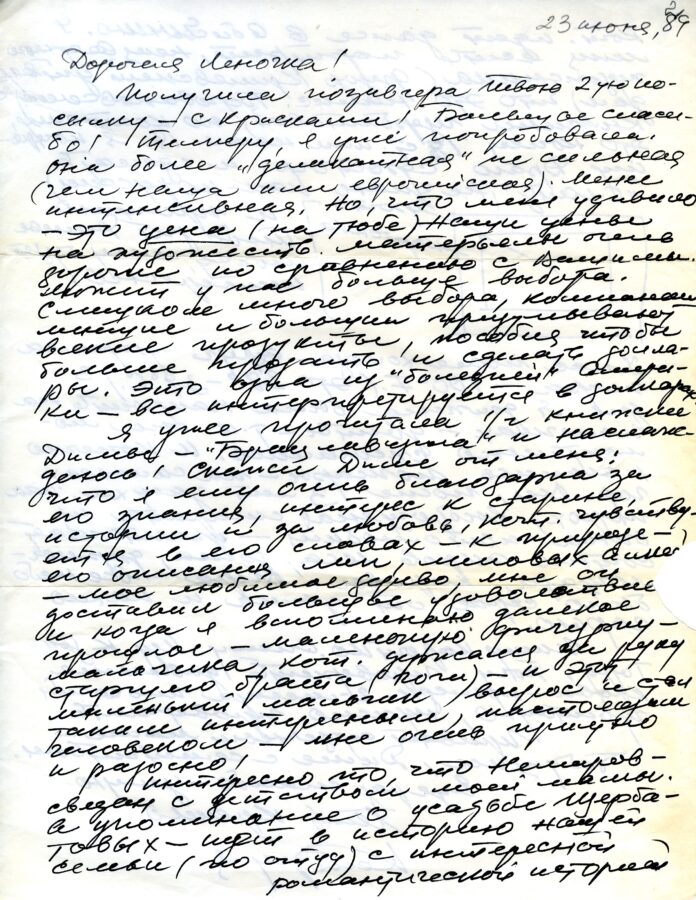 23 июня, 89
Дорогая Леночка!
Получила позавчера твою 2ую по-
сылку – с красками! Большое спаси-
бо! Темперу, я уже попробовала.
она более „деликатная" не сильная
(чем наша или европейская). Менее
интенсивная. Но, что меня удивило
– это цена (на тюбе) Наши цены
на художеств. матерьялы очень
дороже по сравнению с Вашими.
Может у нас больше выбора.
Слишком много выбора,
и больше придумывают
всякие продукты, пособия чтобы
больше продать и сделать долла-
ры. Это одна из "болезней" Амери-
ки – все интерпретируется в долларах
Я уже прочитала 1/2 книжки
Димы – "Братцевщина" и наслаж-
даюсь! Скажи Диме от меня:
что я ему очень благодарна за
его знания, интерес к старине,
истории и за любовь, кот. чувству-
ется в его словах – к природе –
его описания лип, липовых аллей
– мое любимое дерево, мне он
доставил большое удовольствие
и когда я вспоминаю далекое
прошлое – маленькую фигурку –
мальчика, кот. держался за руку
старшего брата (Гоги) – и этот
миленький мальчик вырос и стал
таким интересным, настоящим
человеком – мне очень приятно
и радостно!
Интересно то, что Немиров-
связан с детством моей мамы.
а упоминание о усадьбе Щерба-
товых – идет в историю нашей
семьи (по отцу) с интересной
романтической историей